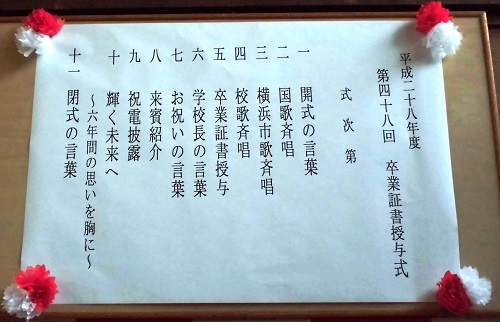 平成二十八年度
第四十八回 卒業証書授与式
式次第
一 開式の言葉
二 国歌斉唱
三 横浜市歌斉唱
四 校歌斉唱
五 卒業証書授与
六 学校長の言葉
七 お祝いの言葉
八 来賓紹介
九 祝電披露
十 輝く未来へ
～六年間の思いを胸に～
十一 閉式の言葉